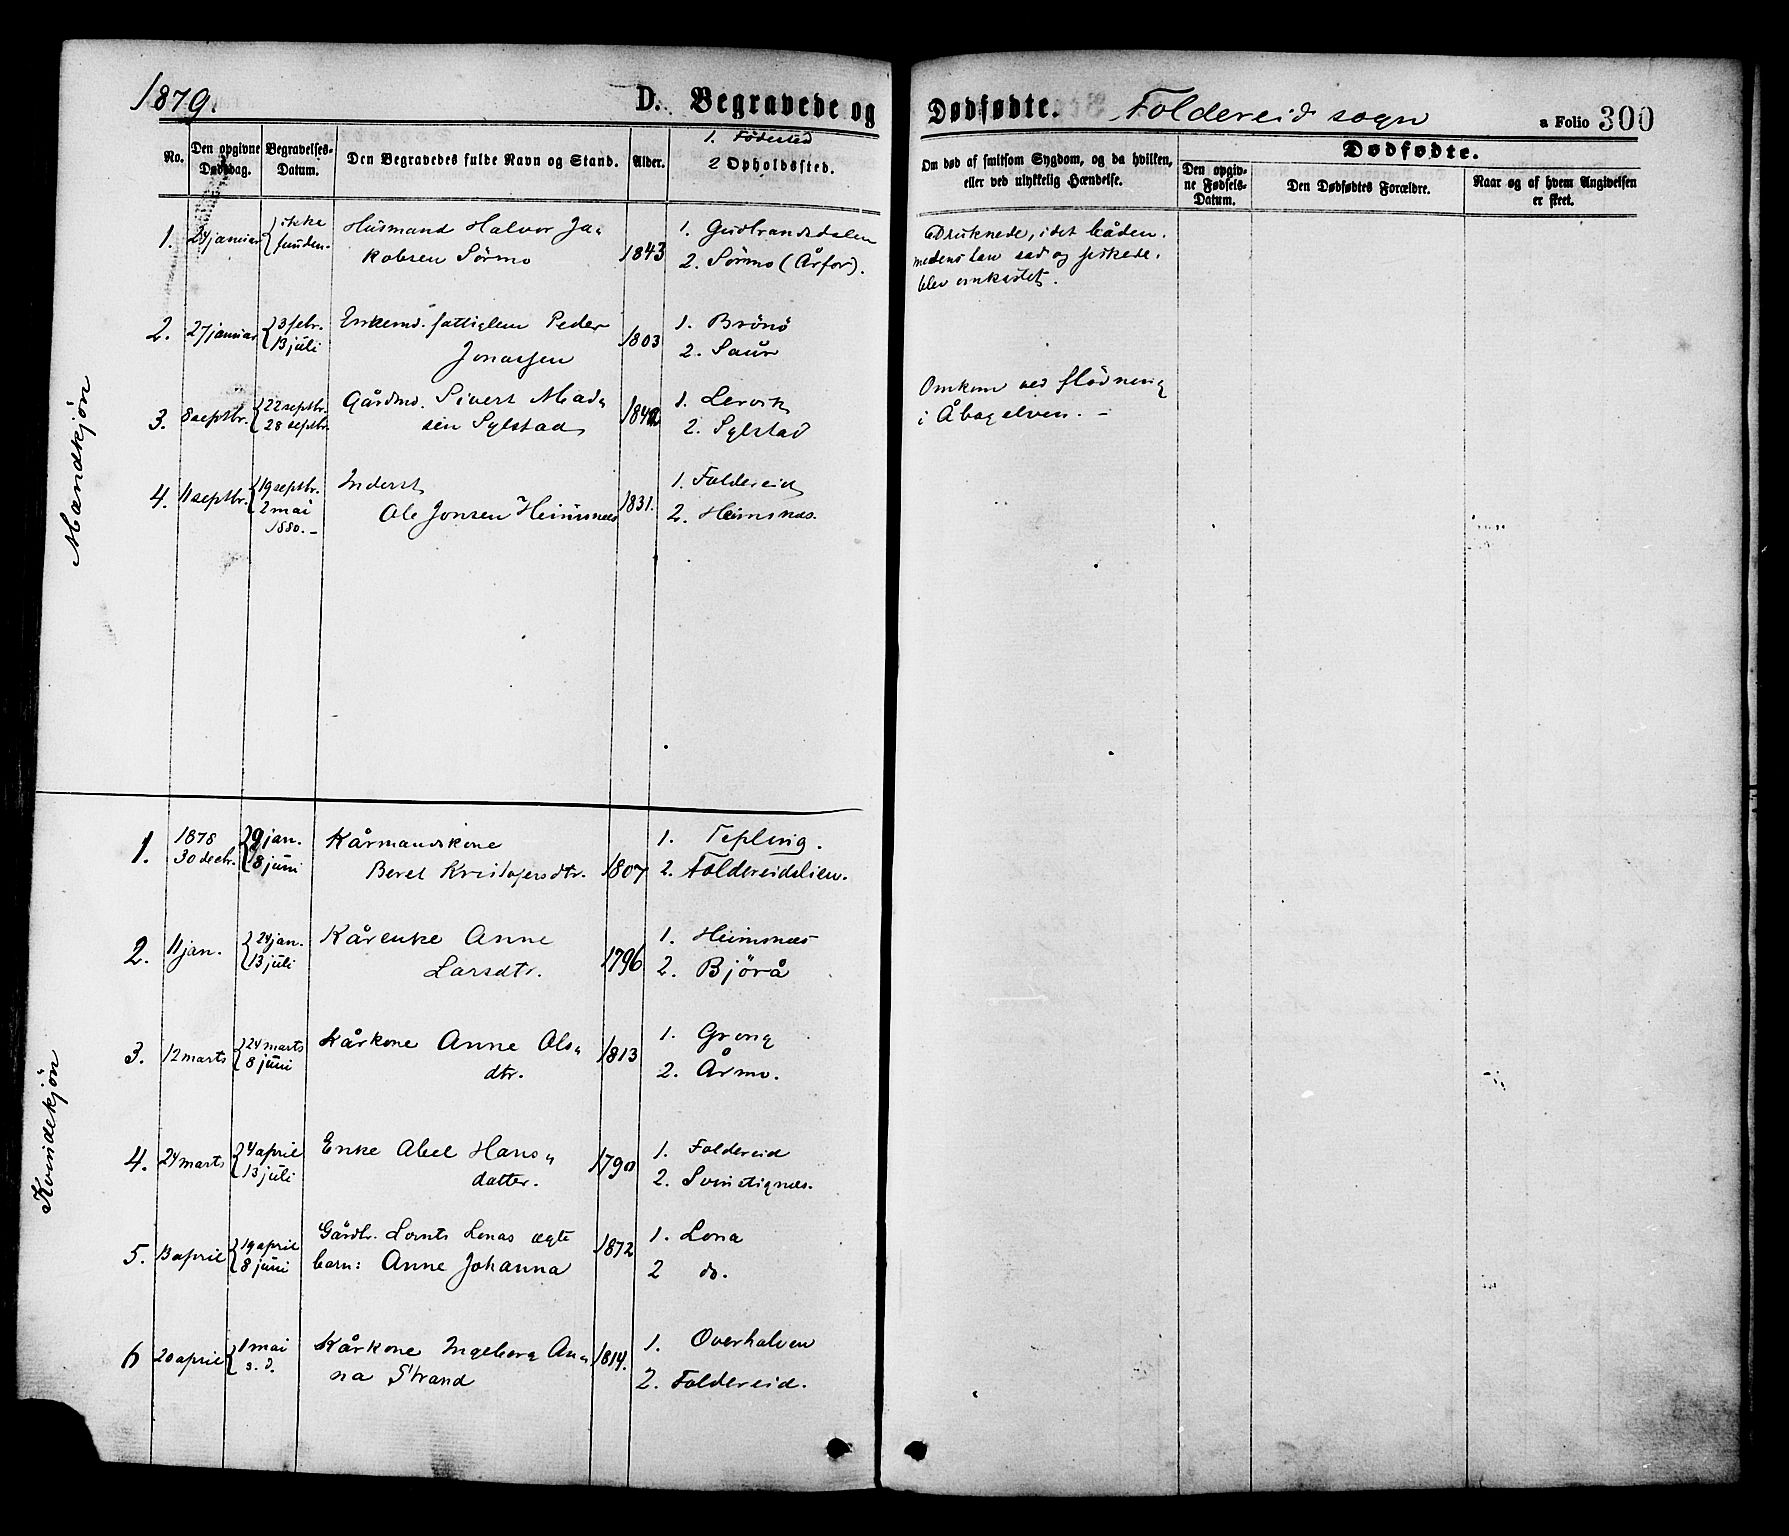 1879.
D. Begravede og
Dødfødte. Foldereid sogn
a Folio 300
No.
Den opgivne Dødsdag.
Begravelses-Datum.
Den Begravedes fulde Navn og Stand.
Alder.
1. Födested
2 Opholdssted.
Om død af smitsom Sygdom, og da hvilken, eller ved ulykkelig Hændelse.
Dødfødte.
Den opgivne Fødsels-Datum.
Den Dødfødtes Forældre.
Naar og af hvem Angivelsen er skeet.
Mandkjön
1. 24 januar { ikke funden. Husmand Halvor Ja- 1. Gudbrandsdalen
kobsen Sörmo 1843 2. Sörmo (Årfor).
Druknede, idet båden,
medens han sad og fiskede,
blev omkastet.
2. 27 januar { 3 febr. Enkemd. fattiglem Peder 1803 1. Brönö
13 juli Jonassen 2. Saur
3. 8 septbr. { 22 septbr. Gårdmd. Sivert Mad- 1. Lervik
28 septbr. sen Sylstad 2. Sylstad
Omkom ved flödning
i Åbogelven. -
4. 11 septbr. { 19 septbr. Inderst 1. Foldereid
2 mai Ole Jonsen Heimsnæs 1831. 2. Heimsnæs.
1880. -
Kvindekjön
1. 1878 { 9 jan. Kårmandskone 1. Tepling.
30 decbr. 8 juni Beret Kristofersdtr. 1807 2. Foldereidslien.
2. 11 jan. { 24 jan. Kårenke Anne 1. Heimsnæs
13 juli Larsdtr. 1796 2. Björå
3. 12 marts { 24 marts Kårkone Anne Ols- 1813 1. Grong
8 juni dtr. 2. Årmo.
4. 24 marts { 4 april Enke Abel Hans- 1790 1. Foldereid
13 juli datter. 2. Svinstignæs.
5. 13 april { 19 april Gårdbr. Lornts Lonas ægte 1872 1. Lona
8 juni barn: Anne Johanna 2 do.
6 20 april { 1 mai Kårkone Ingeborg An- 1814. 1. Overhalven
s. d. na Strand 2. Foldereid.